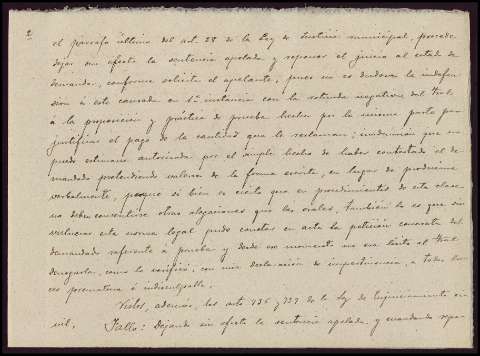 2
el párrafo último del art. 28 de la Ley de Justicia municipal, procede
dejar sin efecto la sentencia apelada y reponer el juicio al estado de
demanda, conforme solicita el apelante, pues no es dudosa la indefen-
sión á este causada en 1ª instancia con la rotunda negativa del Trib.
á la proposición y práctica de prueba hecha por la misma parte para
justificar el pago de la cantidad que le reclaman; indefensión que no
puede estimarse autorizada por el simple hecho de haber contestado el de
mandado pretendiendo valerse de la forma escrita, en lugar de producirse
verbalmente, porque si bien es cierto que en procedimientos de esta clase
no deben consentirse otras alegaciones que las orales, también lo es que sin
vulnerar esta norma legal pudo constar en acta la petición concreta del
demandado referente á prueba y desde ese momento no era lícito al Trib.
denegarla, como la verificó, con una declaración de impertinencia, a todas lu-
ces prematura é indisculpable.
Vistos, además, los arts 435 y 737 de la Ley de Enjuiciamiento ci-
vil. Fallo: Dejando sin efecto la sentencia apelada, y mandando repo-